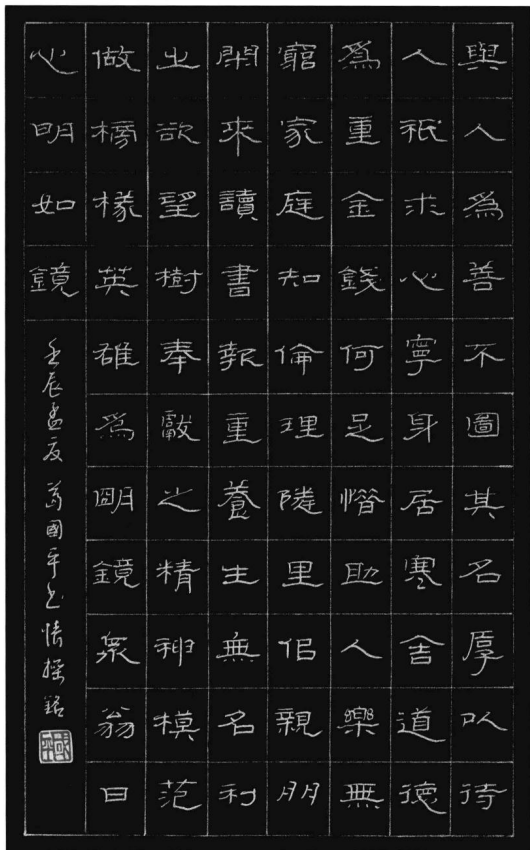 與人爲善不圖其名厚以待
人祇求心寧身居寒舍道德
爲重金錢何足惜助人樂無
窮家庭知倫理隣里侣親朋
開來讀書報重養生無名利
之欲望樹奉獻之精神模范
做榜樣英雄爲明鏡眾翁曰
心明如鏡
壬辰孟夏葛國平書情操